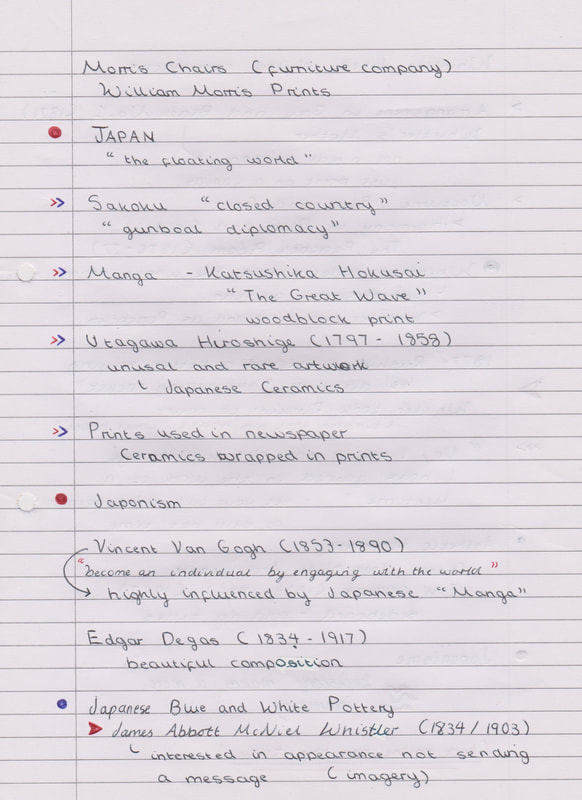 Morris Chairs (furniture company)
William Morris Prints
JAPAN
"the floating world"
Sakoku "closed country"
"gunboat diplomacy"
Manga - Katsushika Hokusai
"The Great Wave"
woodblock print
Utagawa Hiroshige (1797 - 1858)
unusal and rare artwork
Japanese Ceramics
Prints used in newspaper
Ceramics wrapped in prints
Japonism
Vincent Van Gogh (1853 - 1890)
"become an individual by engaging with the world"
highly influenced by Japanese "Manga"
Edgar Degas (1834 - 1917)
beautiful composition
Japanese Blue and White Pottery
James Abbott McNiel Whistler (1834 / 1903)
interested in appearance not sending
a message (imagery)